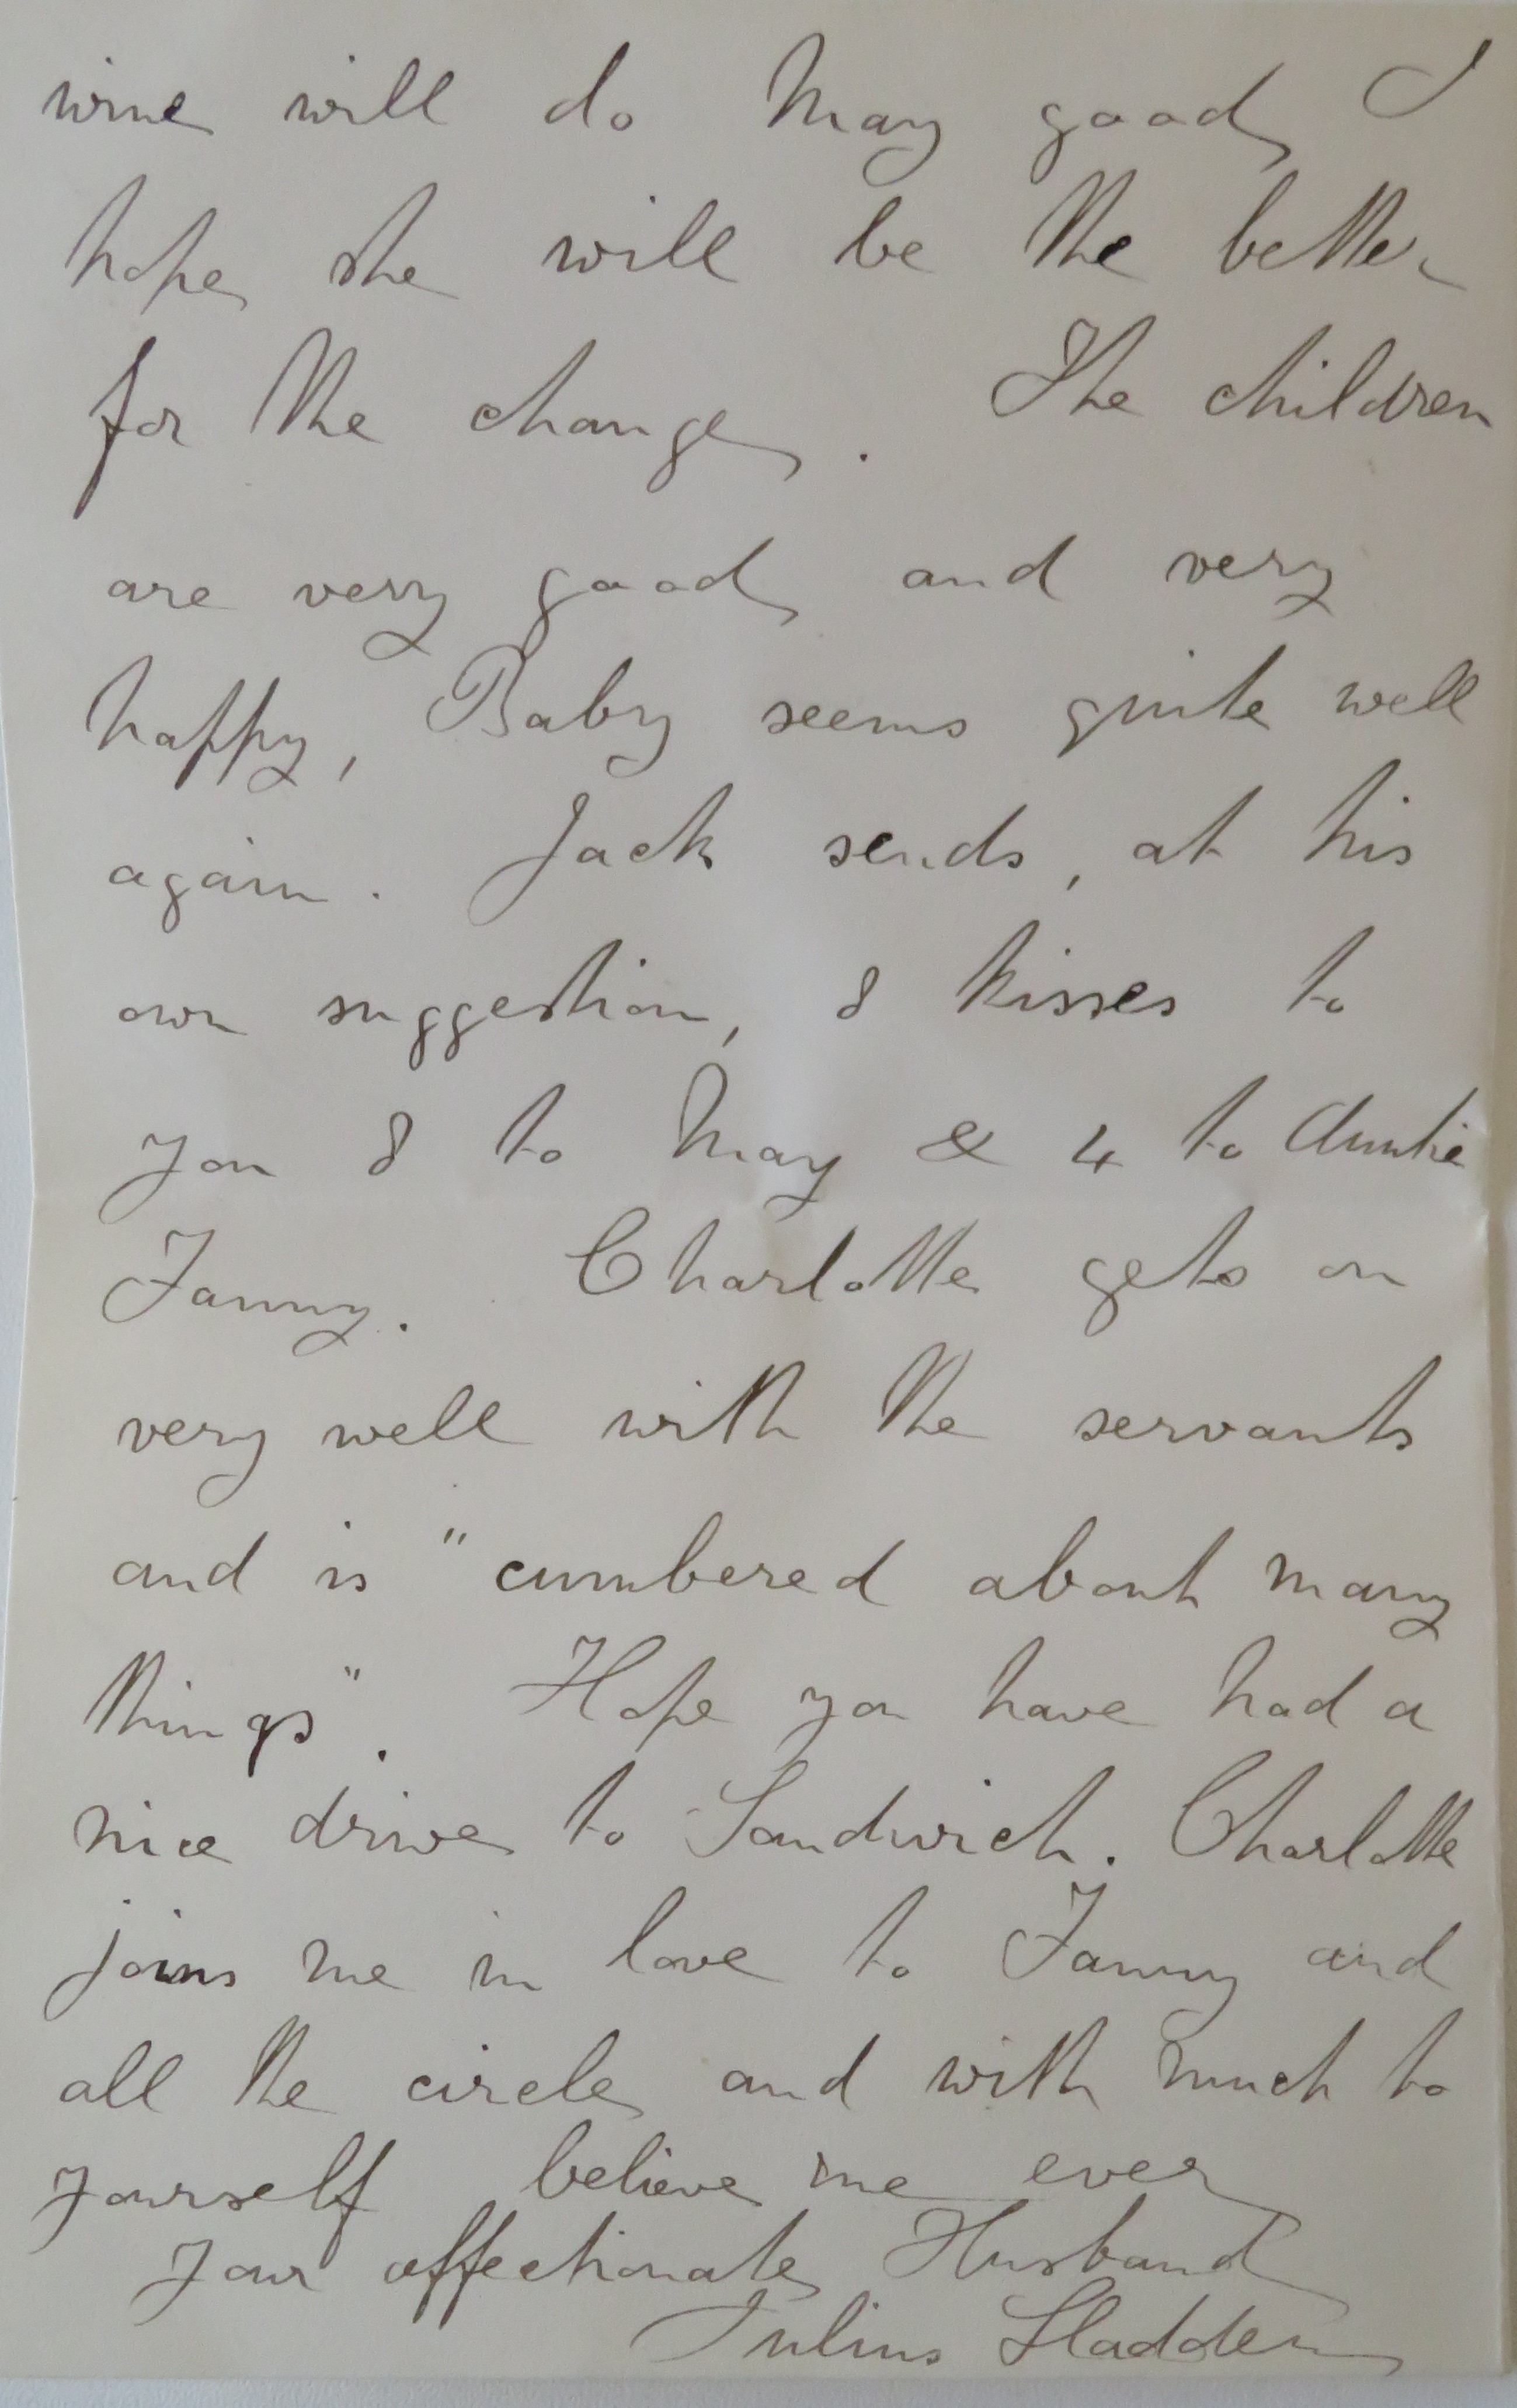 wine will do May good I
hope she will be the better
for the change. The children
are very good and very
happy, Baby seems quite well
again. Jack sends, at his
own suggestion, 8 kisses to
you 8 to May & 4 to Auntie
Fanny. Charlotte gets on
very well with the servants
and is "cumbered about many
things". Hope you have had a
nice drive to Sandwich. Charlotte
joins me in love to Fanny and
all the circle and with much to
yourself believe me ever
Your affectionate Husband
Julius Sladden